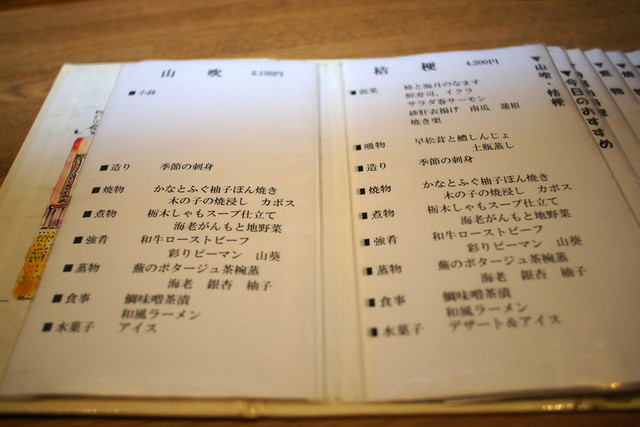 山吹 3,150円
■小鉢
■造り 季節の刺身
■焼物 かなとふぐ柚子ぽん焼き
木の子の焼浸し カボス
■煮物 栃木しゃもスープ仕立て
海老がんもと地野菜
■強肴 和牛ローストビーフ
彩りピーマン 山葵
■蒸物 蕪のポタージュ茶碗蒸
海老 銀杏 柚子
■食事 鯛味噌茶漬
和風ラーメン
■水菓子 アイス
桔梗 4,200円
■前菜 柿と海月のなます
鯵寿司、イクラ
サラダ巻サーモン
砂肝衣揚げ 南瓜 蓮根
焼き栗
■吸物 早松茸と鱧しんじょ
土瓶蒸し
■造り 季節の刺身
■焼物 かなとふぐ柚子ぽん焼き
木の子の焼浸し カボス
■煮物 栃木しゃもスープ仕立て
海老がんもと地野菜
■強肴 和牛ローストビーフ
彩りピーマン 山葵
■蒸物 蕪のポタージュ茶碗蒸
海老 銀杏 柚子
■食事 鯛味噌茶漬
和風ラーメン
■水菓子 デザート&アイス
▼山吹・桔梗
▼今日のおすすめ